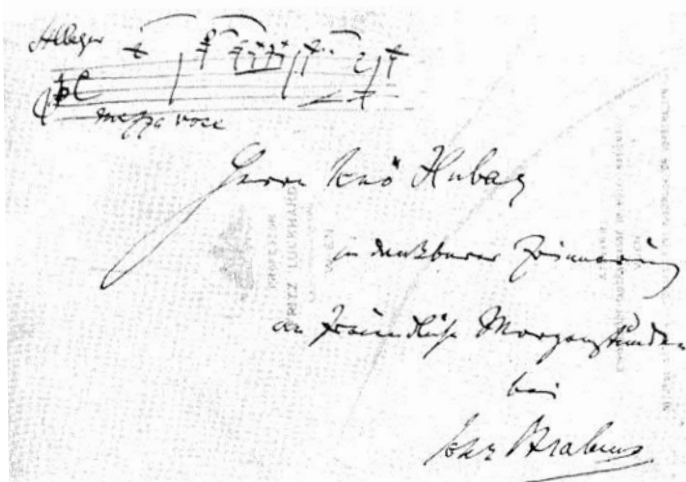 Allegro
mezza voce
Herrn Jenö Hubay
in dankbarer Erinnerung
an freundliche Morgenstunden
bei
Johs Brahms
FRITZ LUCKHARDT
WIEN